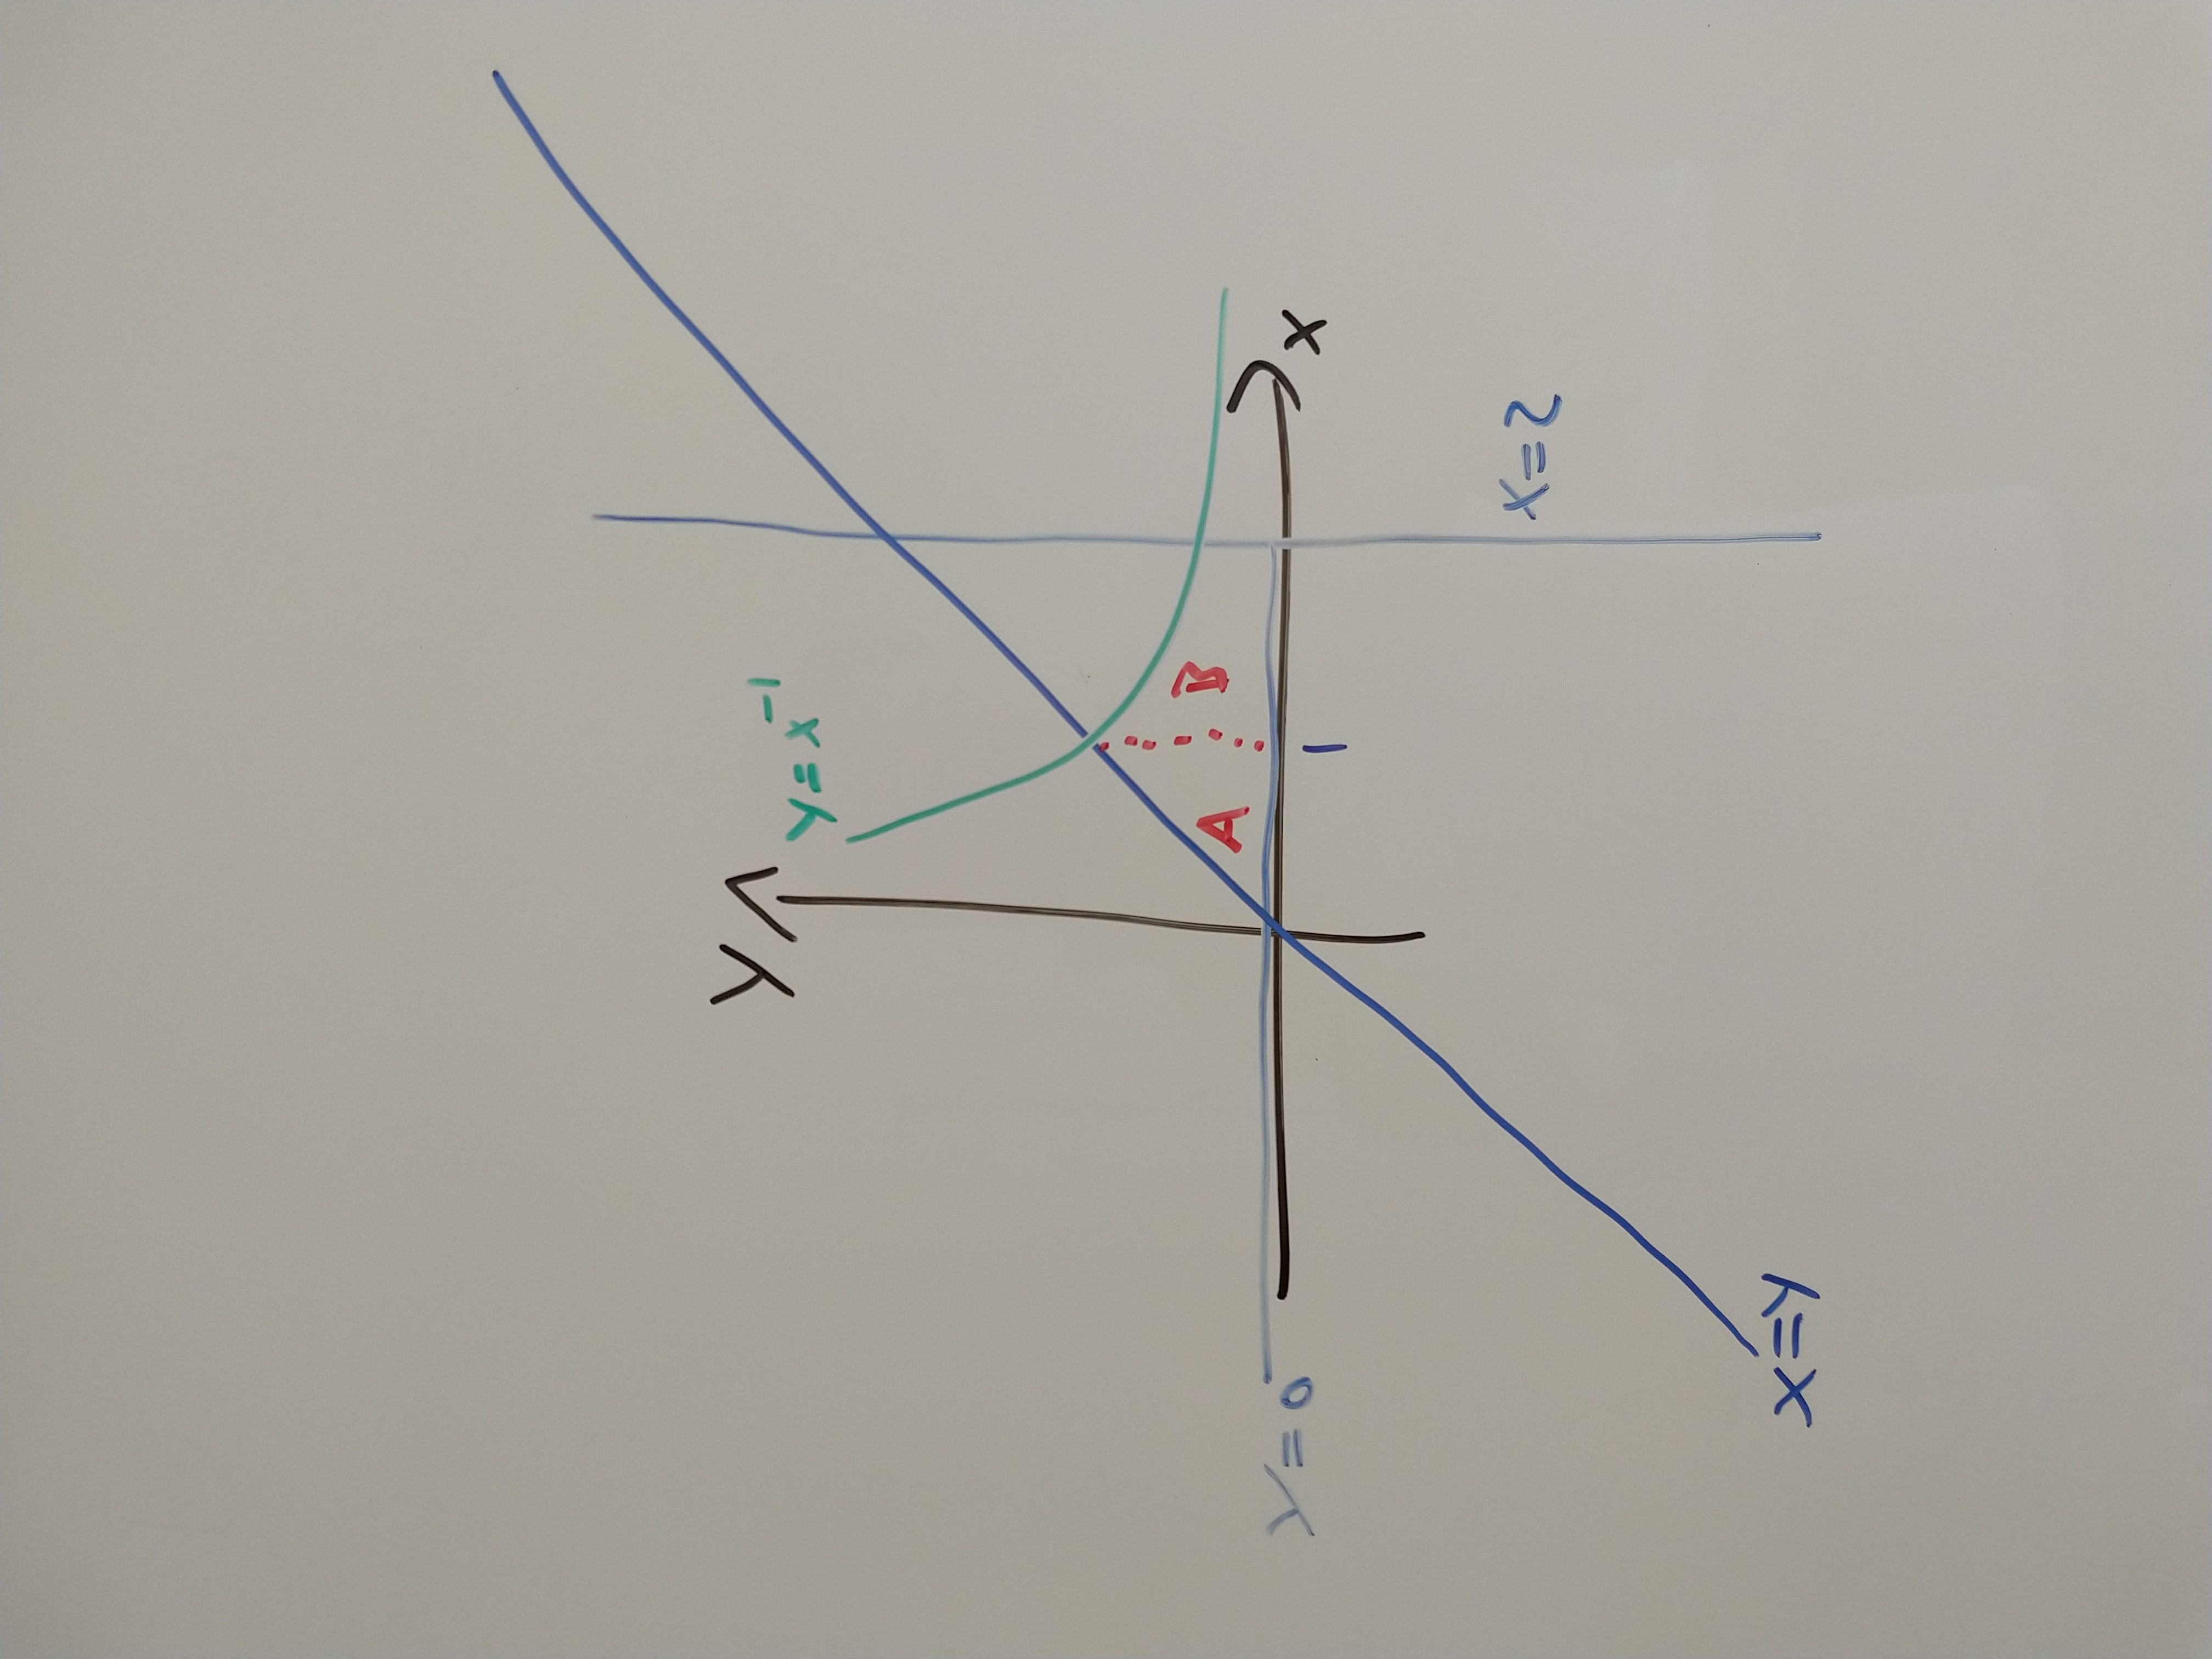 Y
y=x⁻¹
A
B
y=0
x
1
x=2
x=y